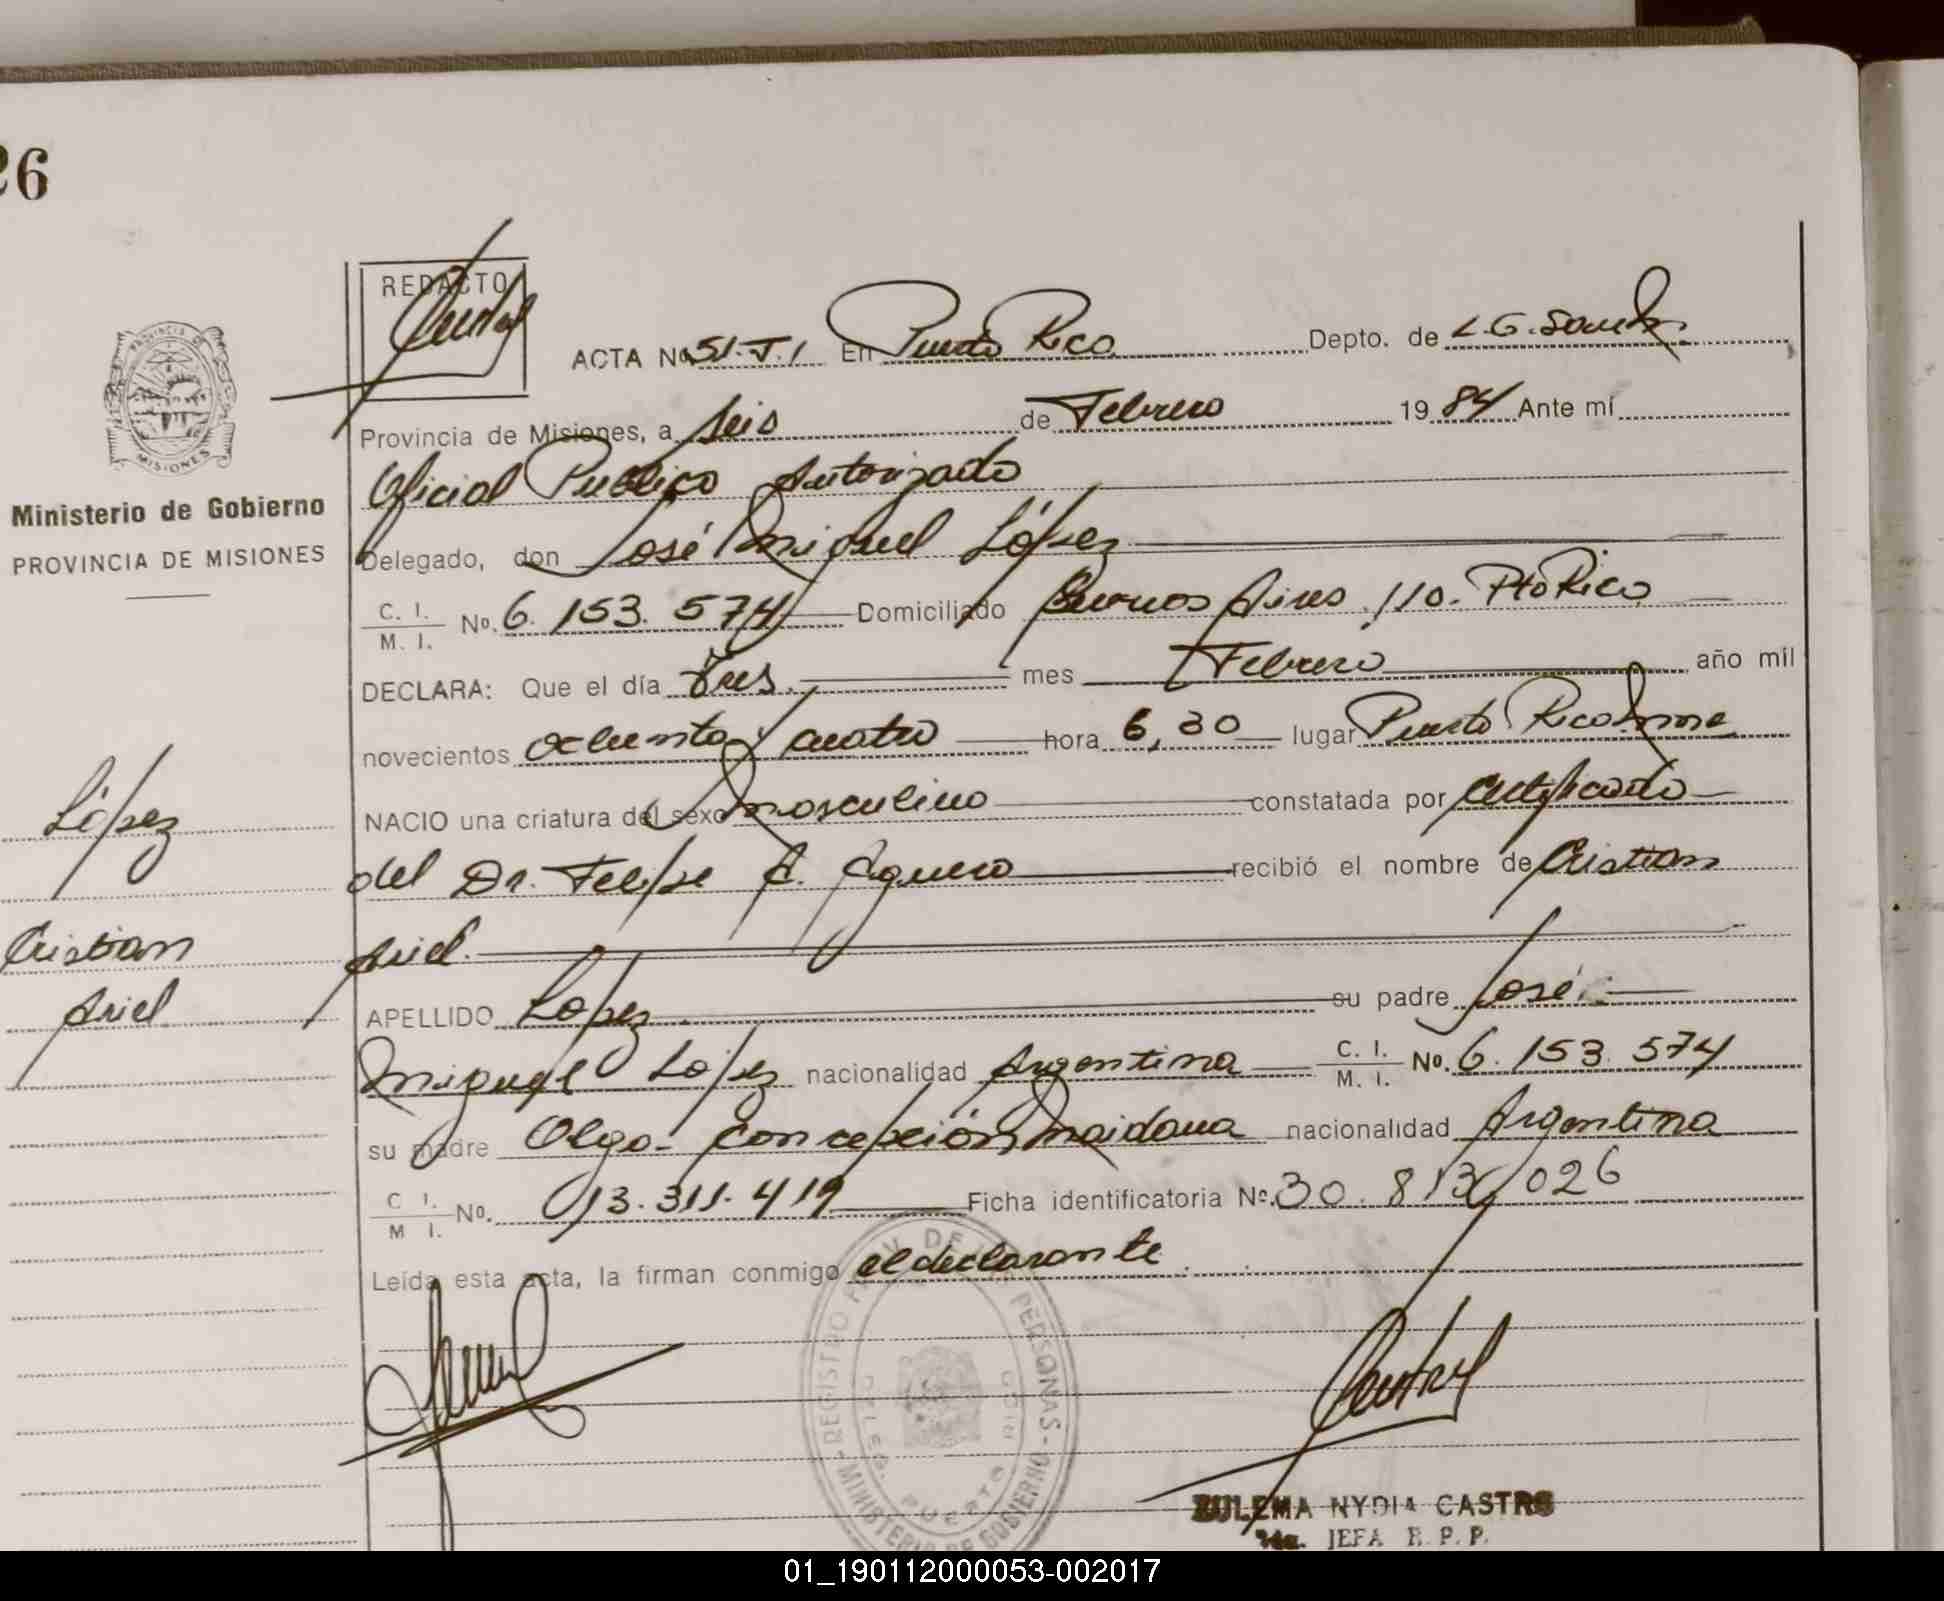 26
REDACTO
ACTA No. 51. T. 1 En Puerto Rico Depto. de L. G. San
Provincia de Misiones, a seis de Febrero 19 84 Ante mí
Oficial Publico Autorizado
Delegado, don José Miguel López
C. I. / M. I. No. 6.153.574 Domiciliado Buenos Aires 110. Pto Rico
DECLARA: Que el día tres. mes Febrero año mil
novecientos ochenta y cuatro hora 6,30 lugar Puerto Rico Mnes
NACIO una criatura del sexo masculino constatada por certificado
del Dr. Felipe A. Aguero recibió el nombre de Cristian
Ariel.
APELLIDO López. su padre José
Miguel López nacionalidad Argentina C. I. / M. I. No. 6.153.574
su madre Olga Concepción Maidana nacionalidad Argentina
C I. / M I. No. 13.311.419 Ficha identificatoria Nº. 30.813.026
Leída esta acta, la firman conmigo el declarante.
PROVINCIA DE
MISIONES
Ministerio de Gobierno
PROVINCIA DE MISIONES
López
Cristian
Ariel
REGISTRO PROV. DE PERSONAS
MINISTERIO DE GOBIERNO
DELEG. PUERTO RICO
ZULEMA NYDIA CASTRO
JEFA R. P. P.
01_190112000053-002017